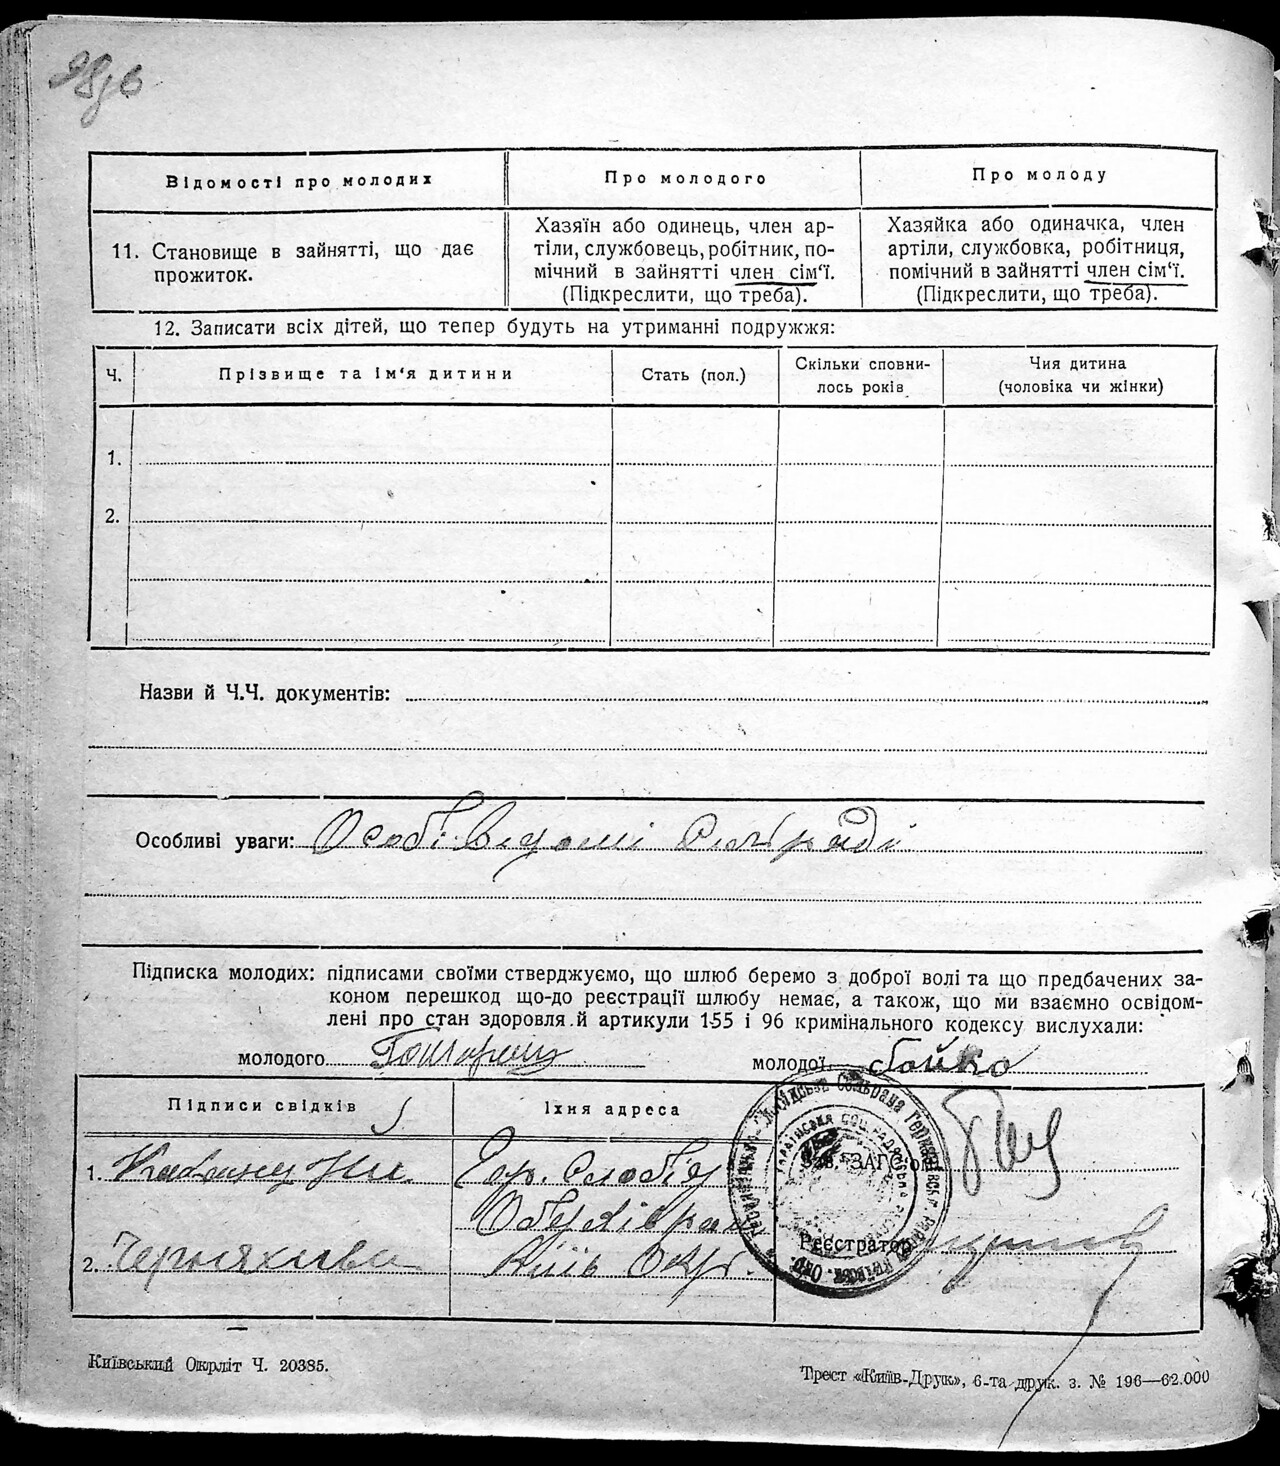 Відомості про молодих
Про молодого
Про молоду
11. Становище в зайнятті, що дає прожиток.
Хазяїн або одинець, член ар-
тіли, службовець, робітник, по-
мічний в зайнятті член сім'ї.
(Підкреслити, що треба).
Хазяйка або одиначка, член
артіли, службовка, робітниця,
помічний в зайнятті член сім'ї.
(Підкреслити, що треба).
12. Записати всіх дітей, що тепер будуть на утриманні подружжя:
Ч.
Прізвище та ім'я дитини
Стать (пол.)
Скільки сповни-
лось років
Чия дитина
(чоловіка чи жінки)
1.
2.
Назви й Ч.Ч. документів:
Особливі уваги: Особ. Відомі Сільраді
Підписка молодих: підписами своїми стверджуємо, що шлюб беремо з доброї волі та що предбачених за-
коном перешкод що-до реєстрації шлюбу немає, а також, що ми взаємно освідом-
лені про стан здоровля й артикули 155 і 96 кримінального кодексу вислухали:
молодого
молодої Бойко
Підписи свідків
Їхня адреса
Зав. ЗАГС'ом
1.
Гор. Слобода
Обухів рай
Реєстратор
2. Черняхівс
Київ Окр.
Київський Окрліт Ч. 20385.
Трест «Київ-Друк», 6-та друк. з. № 196—62.000